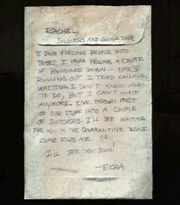 RACHEL,
SOLDIERS ARE GOING DOOR
TO DOOR FORCING PEOPLE INTO
BUSES. I HEARD A COUPLE
OF BUILDINGS DOWN— TIME'S
RUNNING OUT. I TRIED CALLING,
WAITING. I DON'T KNOW WHAT
TO DO, BUT I CAN'T WAIT
ANYMORE. I'VE THROWN MOST
OF OUR STUFF INTO A COUPLE
OF SUITCASES. I'LL BE WAITING
FOR YOU IN THE QUARANTINE ZONE.
COME FIND ME.
I'LL SEE YOU SOON.